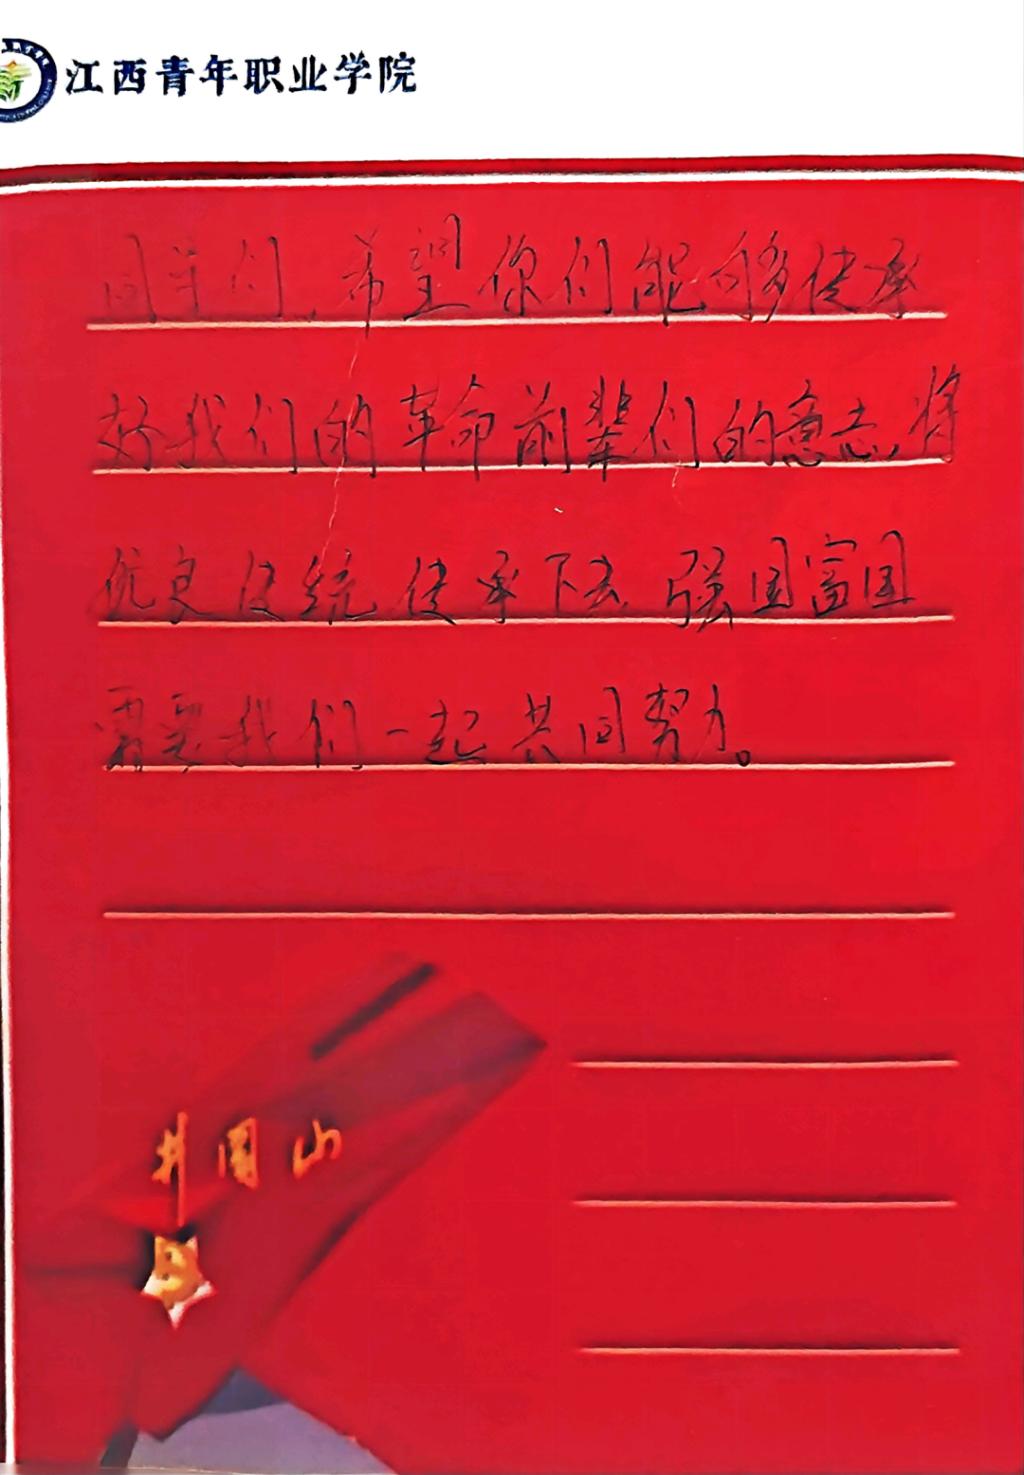 江西青年职业学院
同学们，希望你们能够传承
好我们的革命前辈们的意志，将
优良传统传承下去，强国富国
需要我们一起共同努力。
井冈山